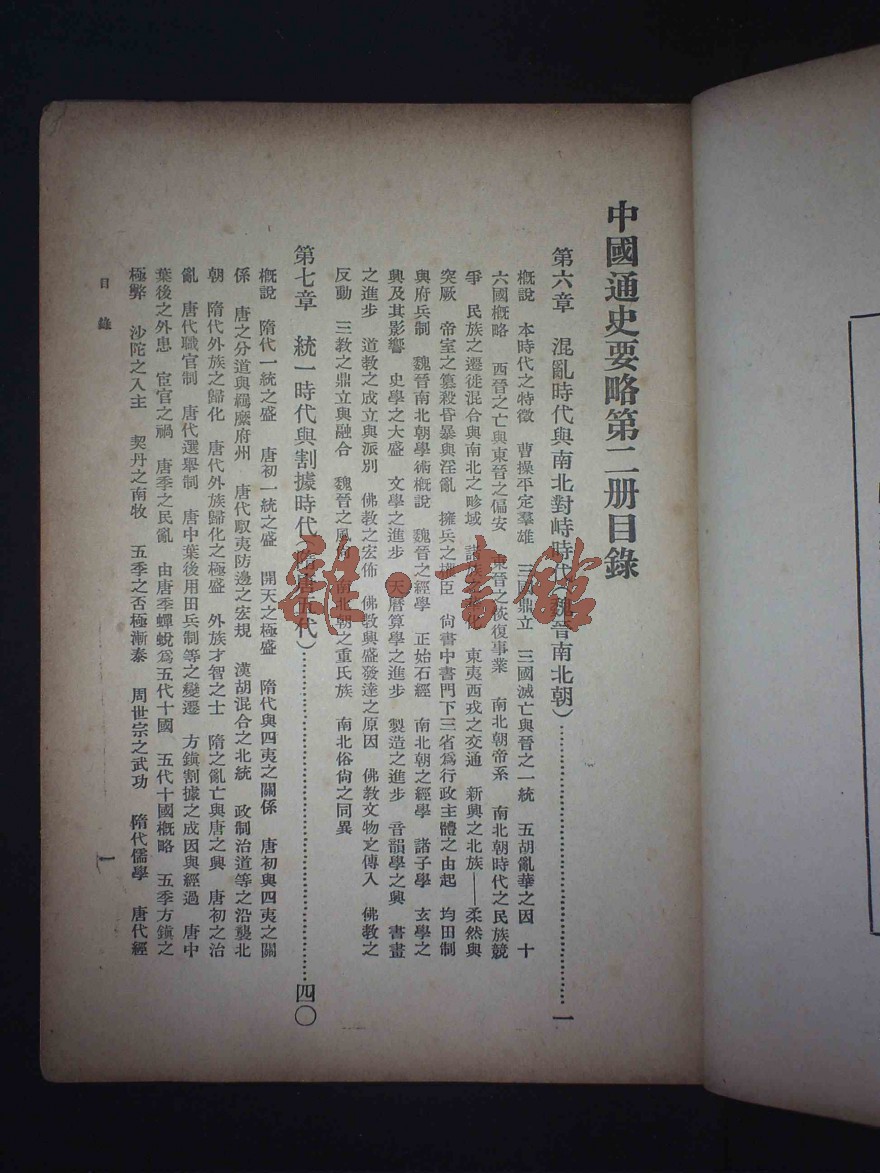 中國通史要略第二册目錄
第六章　混亂時代與南北對峙時代（魏晉南北朝）……一
概說　本時代之特徵　曹操平定羣雄　三國鼎立　三國滅亡與晉之一統　五胡亂華之因　十
六國概略　西晉之亡與東晉之偏安　東晉之恢復事業　南北朝帝系　南北朝時代之民族競
爭　民族之遷徙混合與南北之畛域　諸族之　化　東夷西戎之交通　新興之北族——柔然與
突厥　帝室之篡殺昏暴與淫亂　擁兵之權臣　尙書中書門下三省爲行政主體之由起　均田制
與府兵制　魏晉南北朝學術概說　魏晉之經學　正始石經　南北朝之經學　諸子學　玄學之
興及其影響　史學之大盛　文學之進步　天曆算學之進步　製造之進步　音韻學之興　書畫
之進步　道教之成立與派別　佛教之宏佈　佛教興盛發達之原因　佛教文物之傳入　佛教之
反動　三教之鼎立與融合　魏晉之風尙　南北朝之重氏族　南北俗尙之同異
第七章　統一時代與割據時代（隋唐五代）……四〇
概說　隋代一統之盛　唐初一統之盛　開天之極盛　隋代與四夷之關係　唐初與四夷之關
係　唐之分道與羈縻府州　唐代馭夷防邊之宏規　漢胡混合之北統　政制治道等之沿襲北
朝　隋代外族之歸化　唐代外族歸化之極盛　外族才智之士　隋之亂亡與唐之興　唐初之治
亂　唐代職官制　唐代選舉制　唐中葉後用田兵制等之變遷　方鎭割據之成因與經過　唐中
葉後之外患　宦官之禍　唐季之民亂　由唐季蟬蛻爲五代十國　五代十國概略　五季方鎭之
極弊　沙陀之入主　契丹之南牧　五季之否極漸泰　周世宗之武功　隋代儒學　唐代經
目錄
一
雜·書館